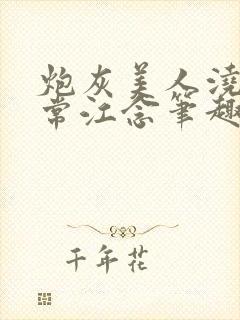 炮灰美人浇
常江念笔趣
千年花